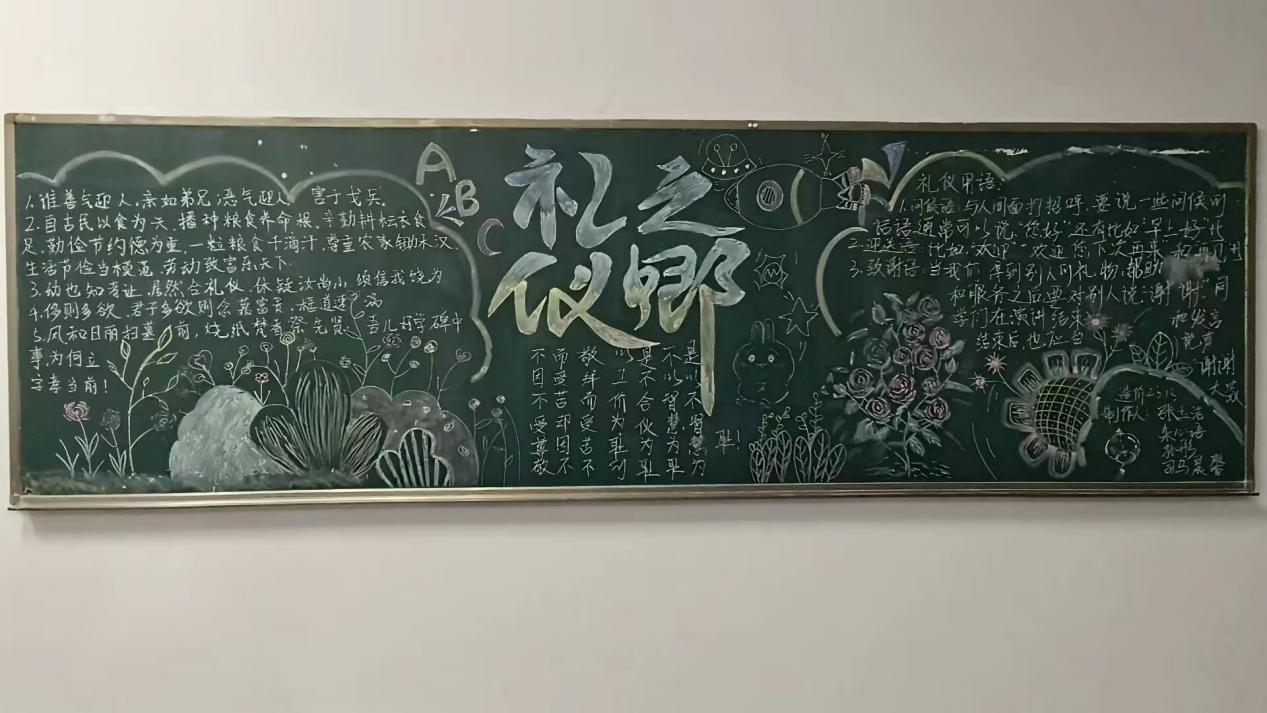 1.谁善气迎人,亲如弟兄;恶气迎人 害于戈兵.
2.自古民以食为天,播种粮食养命根.辛勤耕耘衣食
足,勤俭节约德为重.一粒粮食千滴汁,尊重农家锄禾汉.
生活节俭当模范,劳动致富乐天下.
3.幼也知考让,居然合礼仪.休疑汝尚小,须信我饶为
4.侈则多欲.君子多欲则念慕富贵,枉道速祸
5.风和日丽扫墓前,烧纸焚香祭先贤.吾儿好学碑中
事,为何立
字孝当前!
A
B
C
礼之
仪乡
是以不智慧为
不以智慧为耻
是不合仪为耻
以工价为耻到
敬拜而受苦不
而受苦却因不
不因不受尊敬
耻!
礼仪用语:
1.问候语:与人间面打招呼,要说一些问候问
话语通常可以说"您好"还有比如"早上好"北
2.迎送语:比如"欢迎""欢迎您下次再来"和再见
3.致谢语:当我们得到别人的礼物,帮助
和服务之后要对别人说"谢谢".同
学们在演讲结束 和发言
结束后,也应当
谢谢
大家
造价
制作人:
司马晨馨